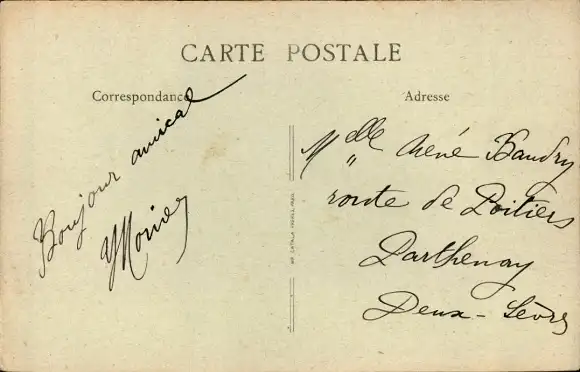 CARTE POSTALE
Correspondance
Adresse
Bonjour amical
Melle René Baudry
route de Poitiers
Parthenay
Deux-Sèvres